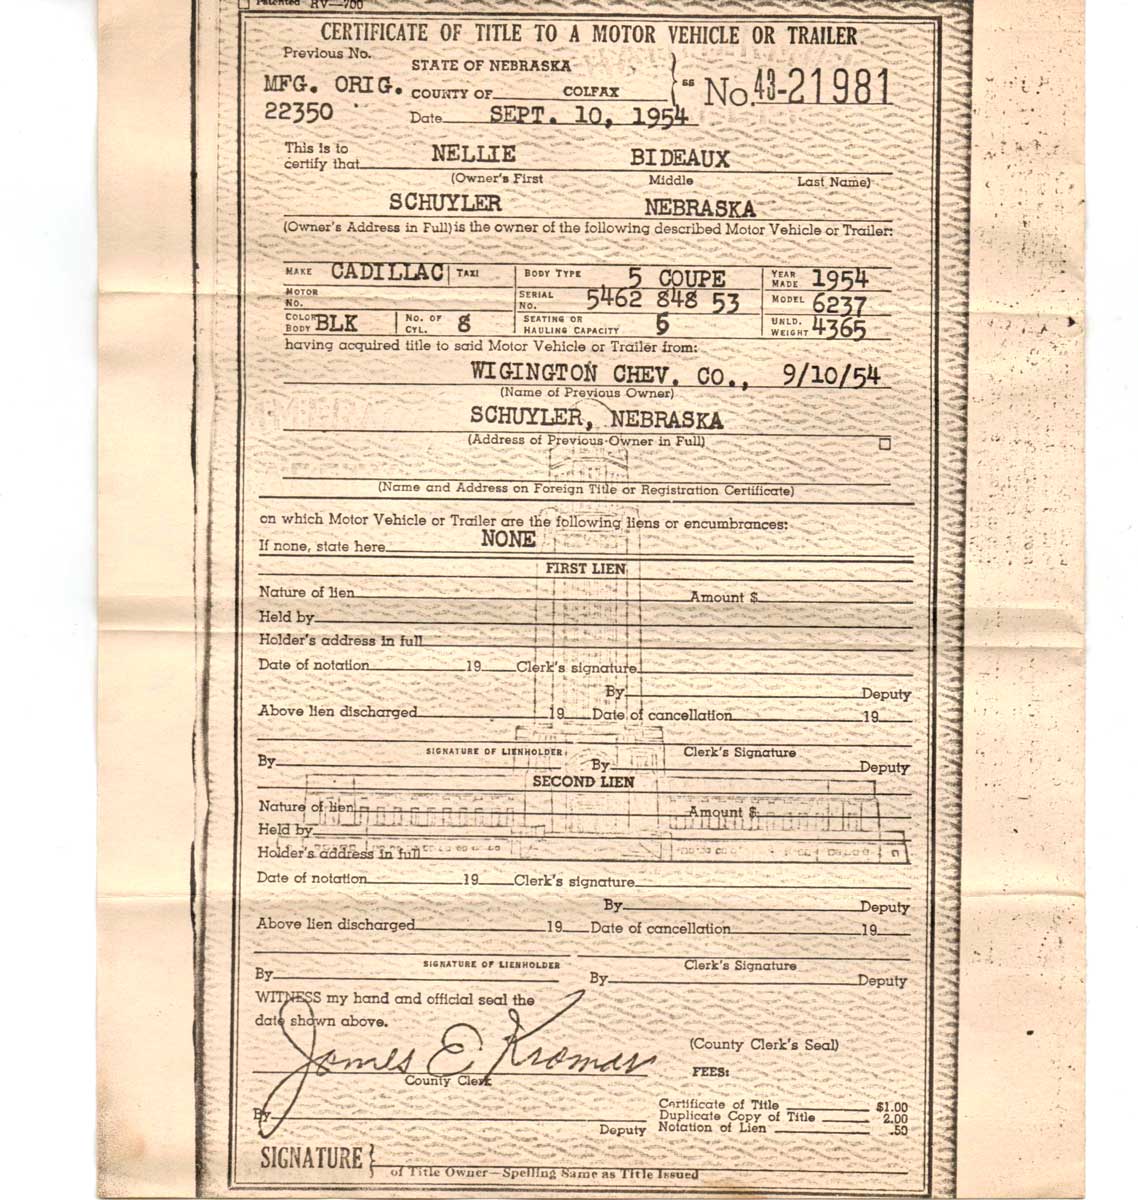 Patented RV—700
CERTIFICATE OF TITLE TO A MOTOR VEHICLE OR TRAILER
Previous No.
STATE OF NEBRASKA
MFG. ORIG. COUNTY OF COLFAX } ss No. 43-21981
22350 Date SEPT. 10, 1954
This is to
certify that NELLIE BIDEAUX
(Owner's First Middle Last Name)
SCHUYLER NEBRASKA
(Owner's Address in Full) is the owner of the following described Motor Vehicle or Trailer:
MAKE CADILLAC TAXI BODY TYPE 5 COUPE YEAR MADE 1954
MOTOR NO. SERIAL NO. 5462 848 53 MODEL 6237
COLOR BODY BLK NO. OF CYL. 8 SEATING OR HAULING CAPACITY 5 UNLD. WEIGHT 4365
having acquired title to said Motor Vehicle or Trailer from:
WIGINGTON CHEV. CO., 9/10/54
(Name of Previous Owner)
SCHUYLER, NEBRASKA
(Address of Previous Owner in Full)
(Name and Address on Foreign Title or Registration Certificate)
on which Motor Vehicle or Trailer are the following liens or encumbrances:
If none, state here NONE
FIRST LIEN
Nature of lien Amount $
Held by
Holder's address in full
Date of notation 19 Clerk's signature
By Deputy
Above lien discharged 19 Date of cancellation 19
SIGNATURE OF LIENHOLDER Clerk's Signature
By By Deputy
SECOND LIEN
Nature of lien Amount $
Held by
Holder's address in full
Date of notation 19 Clerk's signature
By Deputy
Above lien discharged 19 Date of cancellation 19
SIGNATURE OF LIENHOLDER Clerk's Signature
By By Deputy
WITNESS my hand and official seal the
date shown above.
(County Clerk's Seal)
James E Kromar
County Clerk
FEES:
Certificate of Title $1.00
By Duplicate Copy of Title 2.00
Deputy Notation of Lien .50
SIGNATURE {
of Title Owner—Spelling Same as Title Issued